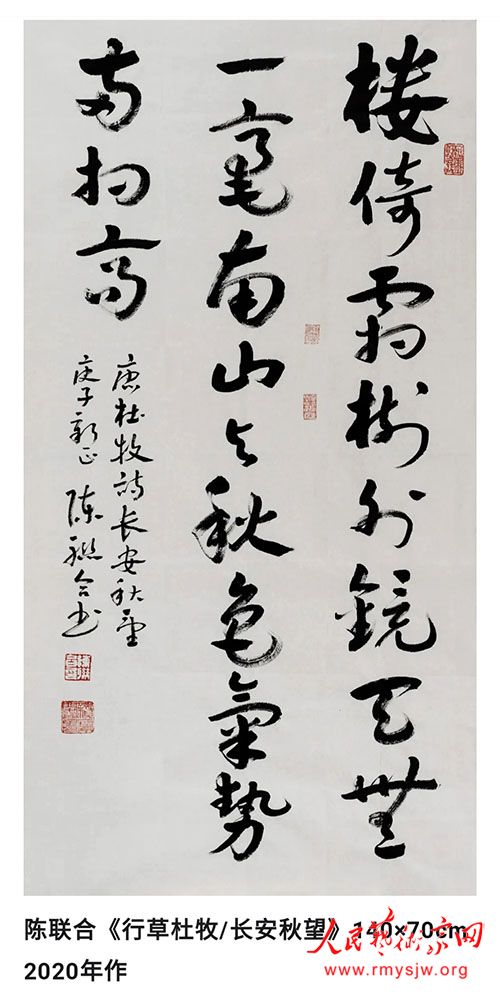 樓倚霜樹外鏡天無
一毫南山与秋色氣勢
兩相高
唐杜牧詩長安秋望
庚子新正 陳聯合書
陈联合《行草杜牧/长安秋望》140×70cm
2020年作
人民藝術家网
www.rmysjw.org